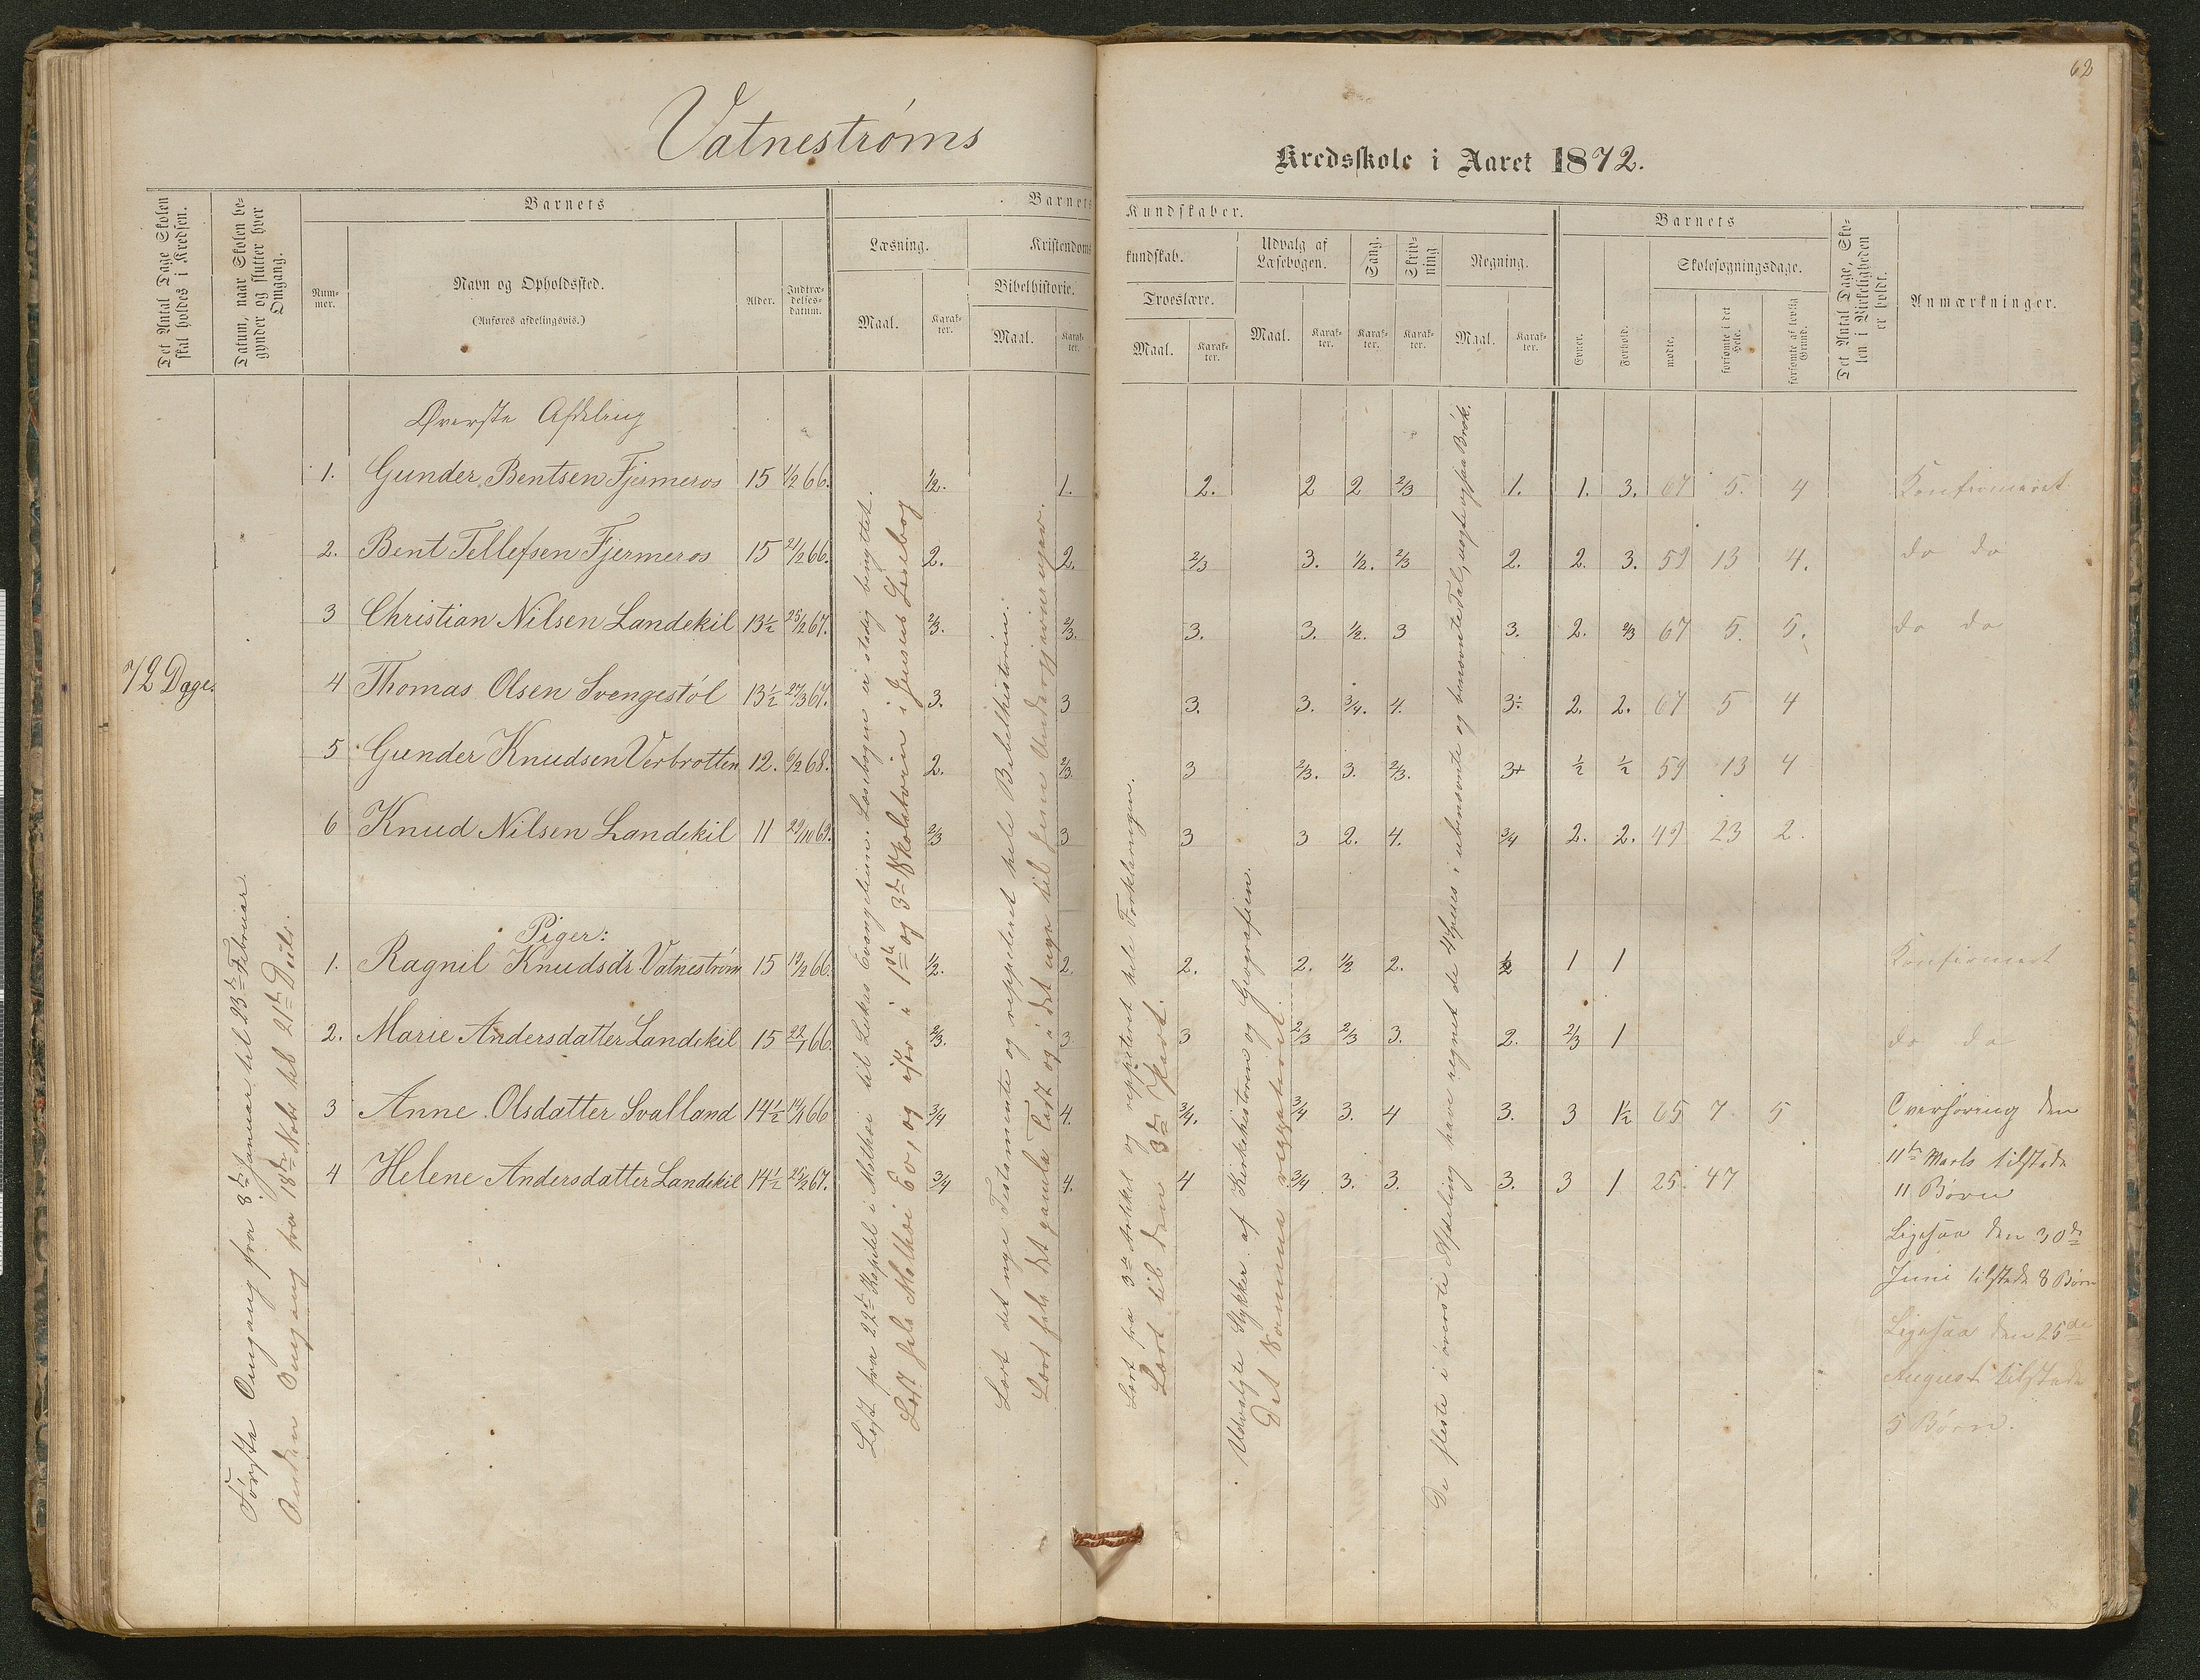 62
Vatnestrøms
Kredsskole i Aaret 1872.
Det Antal Dage Skolen skal holdes i Kredsen.
Datum, naar Skolen begynder og slutter hver Omgang.
Barnets
Nummer.
Navn og Opholdssted.
(Anføres afdelingsvis.)
Alder.
Indtrædelsesdatum.
Barnets
Læsning.
Maal.
Karakter.
Kristendoms
Bibelhistorie.
Maal.
Karakter.
Kundskaber.
kundskab.
Troeslære.
Maal.
Karakter.
Udvalg af Læsebogen.
Maal.
Karakter.
Sang.
Karakter.
Skrivning
Karakter.
Regning.
Maal.
Karakter.
Barnets
Evner.
Forhold.
Skolesøgningsdage.
mødte.
forsømte i det Hele.
forsømte af lovlig Grund.
Det Antal Dage, Skolen i Virkeligheden er holdt.
Anmærkninger.
72 Dage.
Første Omgang fra 8de Januar til 23de Februar
Anden Omgang fra 18de Novbr til 21de Decbr.
Øverste Afdeling
1. Gunder Bentsen Fjermeros 15 1/2 66. 1/2. 1. 2. 2 2 2/3 1. 1. 3. 67 5. 4 Konfirmeret
2. Bent Tellefsen Fjermeros 15 21/2 66. 2. 2. 2/3 3. 1/2. 2/3 2. 2. 3. 59 13 4. do do
3 Christian Nilsen Landekil 13½ 25/2 67. 2/3. 2/3. 3. 3. 1/2. 3 3. 2. 2/3 67 5. 5. do do
4 Thomas Olsen Svengestøl 13½ 27/3 67. 3. 3 3. 3. 3/4. 4. 3÷ 2. 2. 67 5 4
5 Gunder Knudsen Verbrotten 12. 6/2 68. 2. 2/3 3 2/3. 3. 2/3. 3+ ½ ½ 59 13 4
6 Knud Nilsen Landekil 11 29/10 69. 2/3 3 3 3 2. 4. 3/4 2. 2. 49 23 2.
Piger:
1. Ragnil Knudsdr. Vatnestrøm 15 19/2 66. 1/2. 2. 2. 2. 1/2 2. 1/2 1 1 Konfirmert
2. Marie Andersdatter Landekil 15 22/1 66. 2/3. 3 3 2/3 2/3 3. 2. 2/3 1 do do
3 Anne Olsdatter Svalland 14½ 14/1 66 3/4 4. 3/4. 3/4 3. 4 3. 3 1½ 65 7 5
4 Helene Andersdatter Landekil 14½ 25/2 67. 3/4 4. 4 3/4 3. 3. 3. 3 1 25. 47
Læst fra 22de Kapitel i Mathæi til Lukas Evangelium. Læsebogen er stadig benyttet.
Læst hele Mathæi Ev., og efter i 1ste og 3de Skoletrin i Jensens Læsebog
Lært det nye Testamente og repeteret hele Bibelhistorien.
Lært hele det gamle Test. og i det nye til Jesu Undergjerninger.
Lært fra 3die Artikel og repeteret hele Forklaringen.
Lært til den 3de Part.
Udvalgte Stykker af Kirkehistorien og Geografien.
Det samme
De fleste i øverste Afdeling have regnet de 4 Species i ubenævnte og benævnte Tal, nogle ogsaa Brøk.
Overhøring den
11te Marts tilstede
11 Børn
Ligesaa den 30de
Juni tilstede 8 Børn
Ligesaa den 25de
August tilstede
5 Børn.